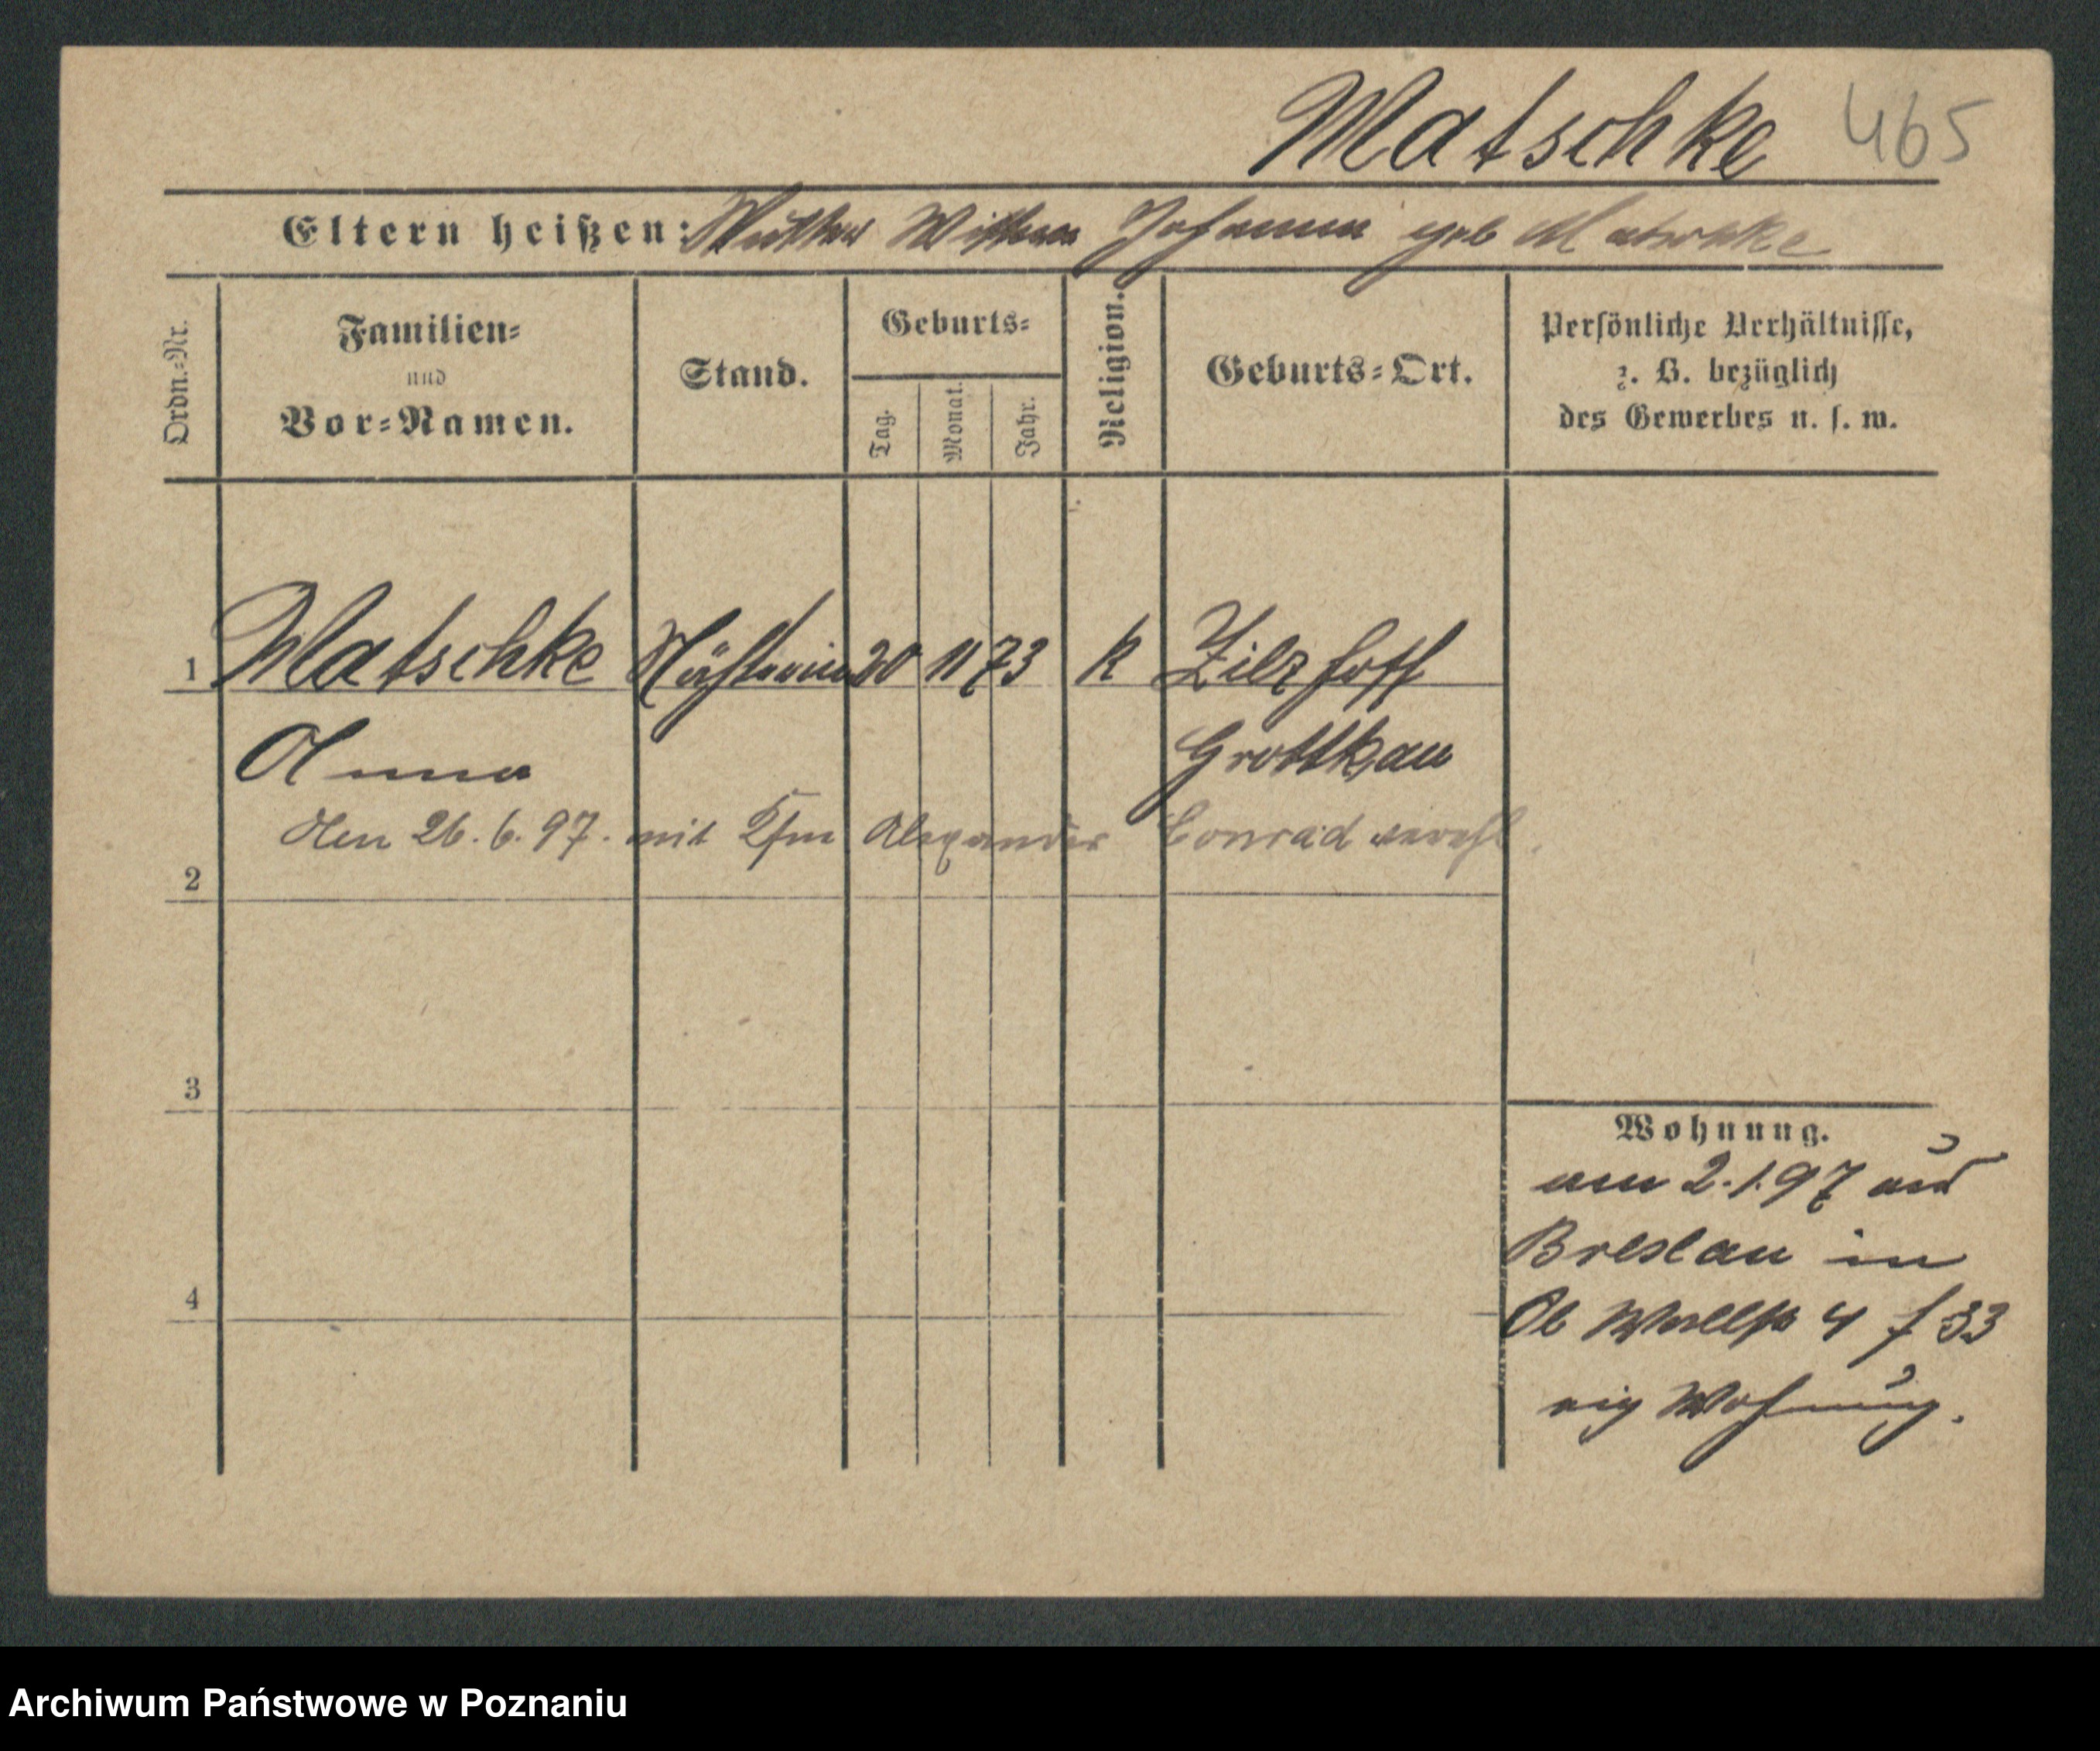 Matschke 465
Eltern heißen: Mutter Wittwe Johanna geb Matschke
Ordn.-Nr.
Familien-
und
Vor-Namen.
Stand.
Geburts-
Tag.
Monat.
Jahr.
Religion.
Geburts-Ort.
Persönliche Verhältnisse,
z. B. bezüglich
des Gewerbes u. s. w.
1 Matschke Näherin 20 11 73 K
Anna Grottkau
Den 26.6.97. mit Kfm Alexander Conrad verehl.
2
3
4
Wohnung.
am 2.1.97 aus
Breslau in
Ob Wallstr 4 f 33
eig Wohnung.
Archiwum Państwowe w Poznaniu